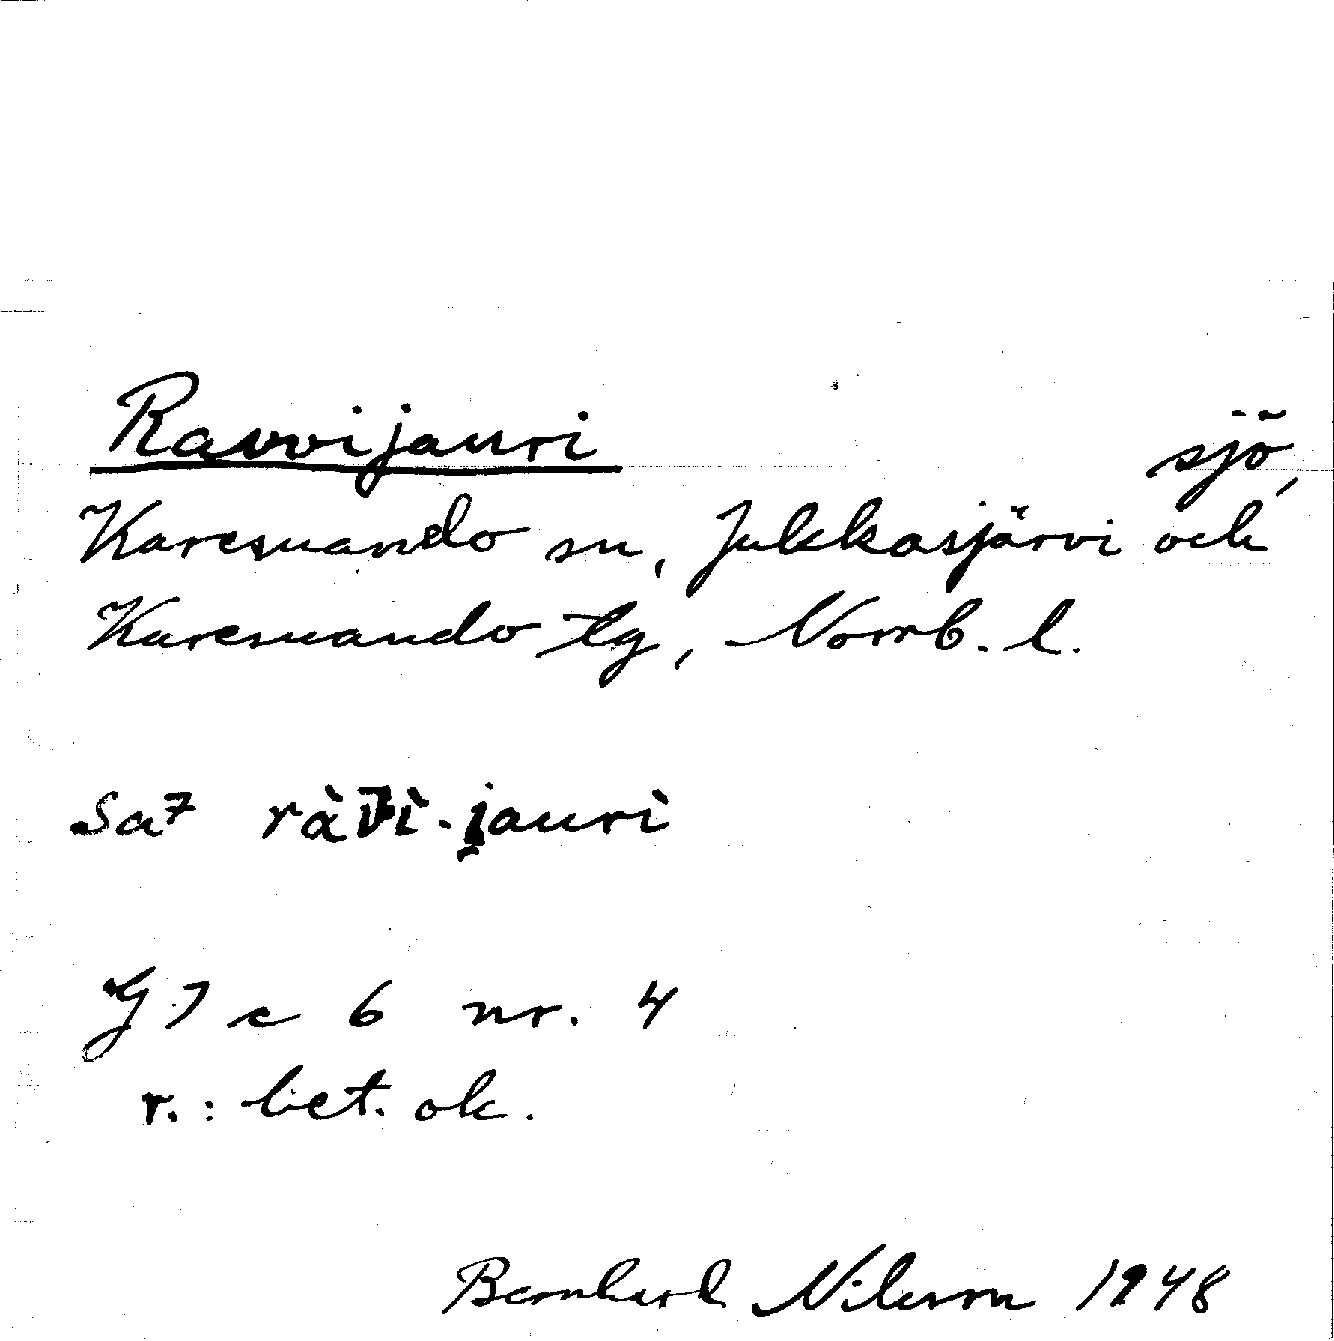 Ravvijauri sjö,
Karesuando sn, Jukkasjärvi och
Karesuando tg, Norrb. l.
Sa7 ràv̄ì-jaurì
G 7 c 6 nr. 4
r.: bet. ok.
Bernhard Nilsson 1948